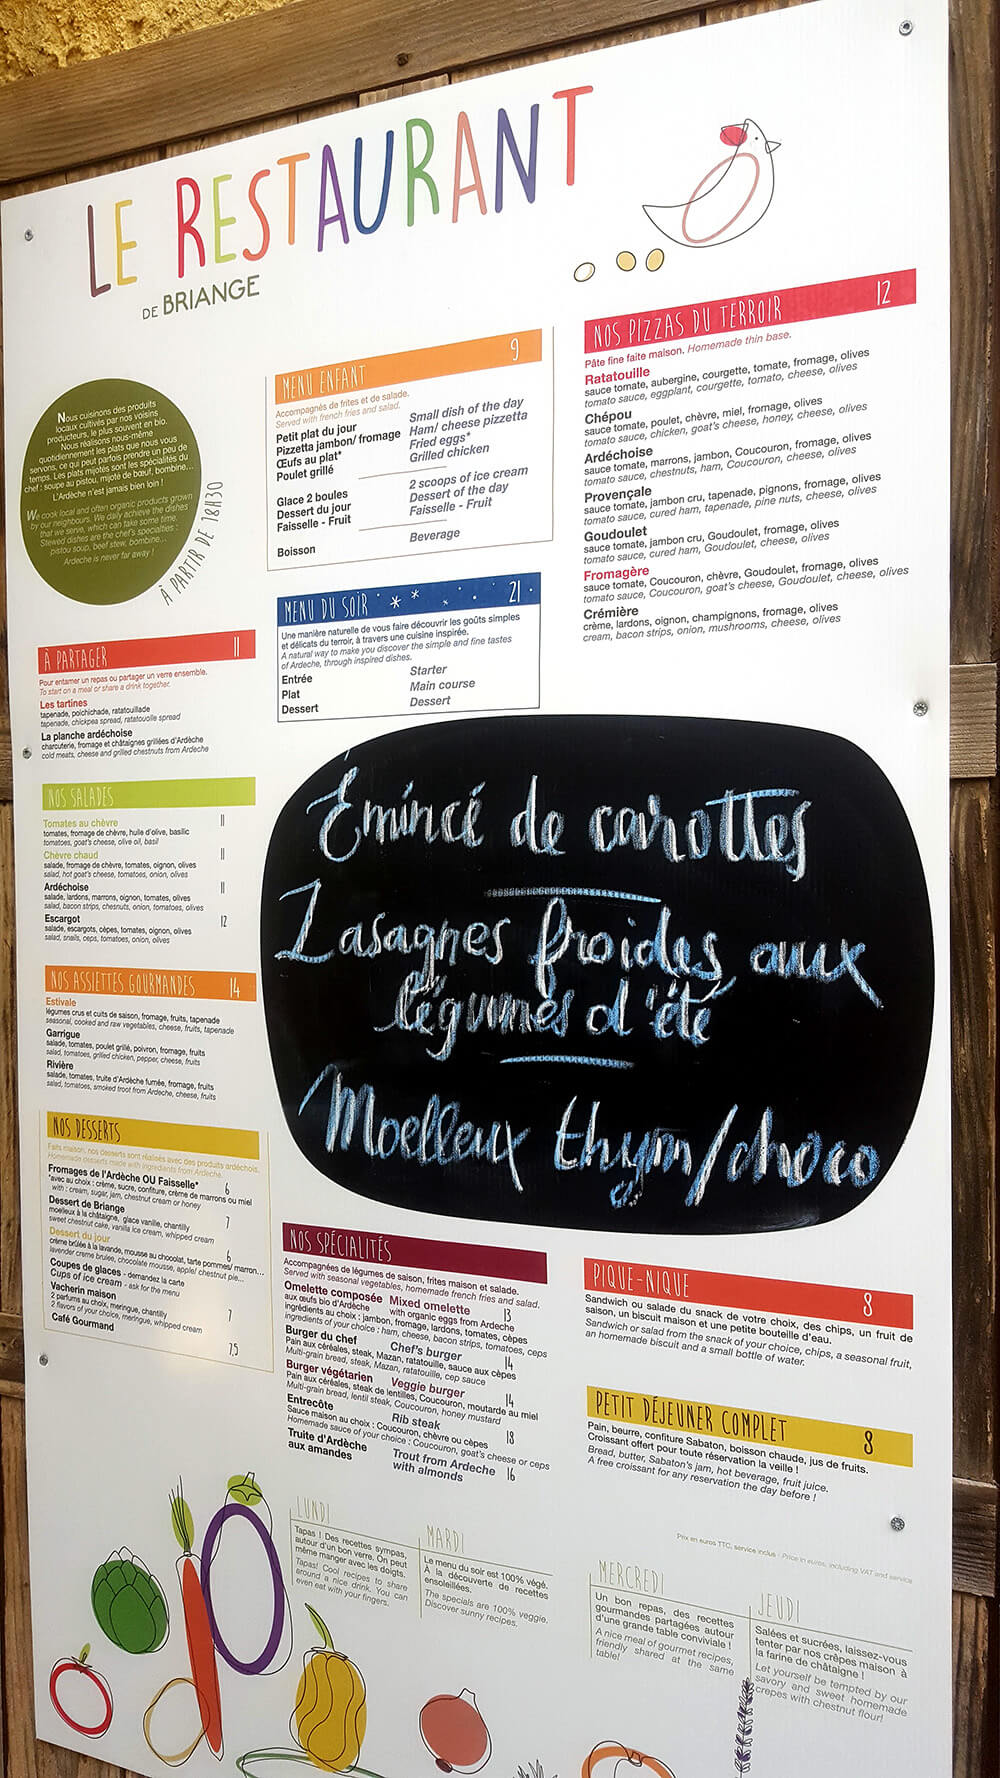 LE RESTAURANT
DE BRIANGE
Nous cuisinons des produits
locaux cultivés par nos voisins
producteurs, le plus souvent en bio.
Nous réalisons nous-même
quotidiennement les plats que nous vous
servons, ce qui peut parfois prendre un peu de
temps. Les plats mijotés sont les spécialités du
chef : soupe au pistou, mijoté de bœuf, bombine...
L'Ardèche n'est jamais bien loin !
We cook local and often organic products grown
by our neighbours. We daily achieve the dishes
that we serve, which can take some time.
Stewed dishes are the chef's specialties :
pistou soup, beef stew, bombine...
Ardeche is never far away !
À PARTIR DE 18H30
À PARTAGER 11
Pour entamer un repas ou partager un verre ensemble.
To start on a meal or share a drink together.
Les tartines
tapenade, poichichade, ratatouillade
tapenade, chickpea spread, ratatouolle spread
La planche ardéchoise
charcuterie, fromage et châtaignes grillées d'Ardèche
cold meats, cheese and grilled chestnuts from Ardeche
NOS SALADES
Tomates au chèvre 11
tomates, fromage de chèvre, huile d'olive, basilic
tomatoes, goat's cheese, olive oil, basil
Chèvre chaud 11
salade, fromage de chèvre, tomates, oignon, olives
salad, hot goat's cheese, tomatoes, onion, olives
Ardéchoise 11
salade, lardons, marrons, oignon, tomates, olives
salad, bacon strips, chesnuts, onion, tomatoes, olives
Escargot 12
salade, escargots, cèpes, tomates, oignon, olives
salad, snails, ceps, tomatoes, onion, olives
NOS ASSIETTES GOURMANDES 14
Estivale
légumes crus et cuits de saison, fromage, fruits, tapenade
seasonal, cooked and raw vegetables, cheese, fruits, tapenade
Garrigue
salade, tomates, poulet grillé, poivron, fromage, fruits
salad, tomatoes, grilled chicken, pepper, cheese, fruits
Rivière
salade, tomates, truite d'Ardèche fumée, fromage, fruits
salad, tomatoes, smoked troot from Ardeche, cheese, fruits
NOS DESSERTS
Faits maison, nos desserts sont réalisés avec des produits ardéchois.
Homemade desserts made with ingredients from Ardeche.
Fromages de l'Ardèche OU Faisselle* 6
*avec au choix : crème, sucre, confiture, crème de marrons ou miel
with : cream, sugar, jam, chestnut cream or honey
Dessert de Briange 7
moelleux à la châtaigne, glace vanille, chantilly
sweet chestnut cake, vanilla ice cream, whipped cream
Dessert du jour 6
crème brûlée à la lavande, mousse au chocolat, tarte pommes/ marron...
lavender creme brulee, chocolate mousse, apple/ chestnut pie...
Coupes de glaces - demandez la carte
Cups of ice cream - ask for the menu
Vacherin maison 7
2 parfums au choix, meringue, chantilly
2 flavors of your choice, meringue, whipped cream
Café Gourmand 7,5
MENU ENFANT 9
Accompagnés de frites et de salade.
Served with french fries and salad.
Petit plat du jour Small dish of the day
Pizzetta jambon/ fromage Ham/ cheese pizzetta
Œufs au plat* Fried eggs*
Poulet grillé Grilled chicken
Glace 2 boules 2 scoops of ice cream
Dessert du jour Dessert of the day
Faisselle - Fruit Faisselle - Fruit
Boisson Beverage
MENU DU SOIR 21
Une manière naturelle de vous faire découvrir les goûts simples
et délicats du terroir, à travers une cuisine inspirée.
A natural way to make you discover the simple and fine tastes
of Ardeche, through inspired dishes.
Entrée Starter
Plat Main course
Dessert Dessert
NOS PIZZAS DU TERROIR 12
Pâte fine faite maison. Homemade thin base.
Ratatouille
sauce tomate, aubergine, courgette, tomate, fromage, olives
tomato sauce, eggplant, courgette, tomato, cheese, olives
Chépou
sauce tomate, poulet, chèvre, miel, fromage, olives
tomato sauce, chicken, goat's cheese, honey, cheese, olives
Ardéchoise
sauce tomate, marrons, jambon, Coucouron, fromage, olives
tomato sauce, chestnuts, ham, Coucouron, cheese, olives
Provençale
sauce tomate, jambon cru, tapenade, pignons, fromage, olives
tomato sauce, cured ham, tapenade, pine nuts, cheese, olives
Goudoulet
sauce tomate, jambon cru, Goudoulet, fromage, olives
tomato sauce, cured ham, Goudoulet, cheese, olives
Fromagère
sauce tomate, Coucouron, chèvre, Goudoulet, fromage, olives
tomato sauce, Coucouron, goat's cheese, Goudoulet, cheese, olives
Crémière
crème, lardons, oignon, champignons, fromage, olives
cream, bacon strips, onion, mushrooms, cheese, olives
Émincé de carottes
Lasagnes froides aux
légumes d'été
Moelleux thym/choco
NOS SPÉCIALITÉS
Accompagnées de légumes de saison, frites maison et salade.
Served with seasonal vegetables, homemade french fries and salad.
Omelette composée Mixed omelette 13
aux œufs bio d'Ardèche with organic eggs from Ardeche
ingrédients au choix : jambon, fromage, lardons, tomates, cèpes
ingredients of your choice : ham, cheese, bacon strips, tomatoes, ceps
Burger du chef Chef's burger 14
Pain aux céréales, steak, Mazan, ratatouille, sauce aux cèpes
Multi-grain bread, steak, Mazan, ratatouille, cep sauce
Burger végétarien Veggie burger 14
Pain aux céréales, steak de lentilles, Coucouron, moutarde au miel
Multi-grain bread, lentil steak, Coucouron, honey mustard
Entrecôte Rib steak 18
Sauce maison au choix : Coucouron, chèvre ou cèpes
Homemade sauce of your choice : Coucouron, goat's cheese or ceps
Truite d'Ardèche Trout from Ardeche 16
aux amandes with almonds
PIQUE-NIQUE 8
Sandwich ou salade du snack de votre choix, des chips, un fruit de
saison, un biscuit maison et une petite bouteille d'eau.
Sandwich or salad from the snack of your choice, chips, a seasonal fruit,
an homemade biscuit and a small bottle of water.
PETIT DÉJEUNER COMPLET 8
Pain, beurre, confiture Sabaton, boisson chaude, jus de fruits.
Croissant offert pour toute réservation la veille !
Bread, butter, Sabaton's jam, hot beverage, fruit juice.
A free croissant for any reservation the day before !
Prix en euros TTC, service inclus - Price in euros, including VAT and service
LUNDI
Tapas ! Des recettes sympas,
autour d'un bon verre. On peut
même manger avec les doigts.
Tapas! Cool recipes to share
around a nice drink. You can
even eat with your fingers.
MARDI
Le menu du soir est 100% végé.
À la découverte de recettes
ensoleillées.
The specials are 100% veggie.
Discover sunny recipes.
MERCREDI
Un bon repas, des recettes
gourmandes partagées autour
d'une grande table conviviale !
A nice meal of gourmet recipes,
friendly shared at the same
table!
JEUDI
Salées et sucrées, laissez-vous
tenter par nos crêpes maison à
la farine de châtaigne !
Let yourself be tempted by our
savory and sweet homemade
crepes with chestnut flour!